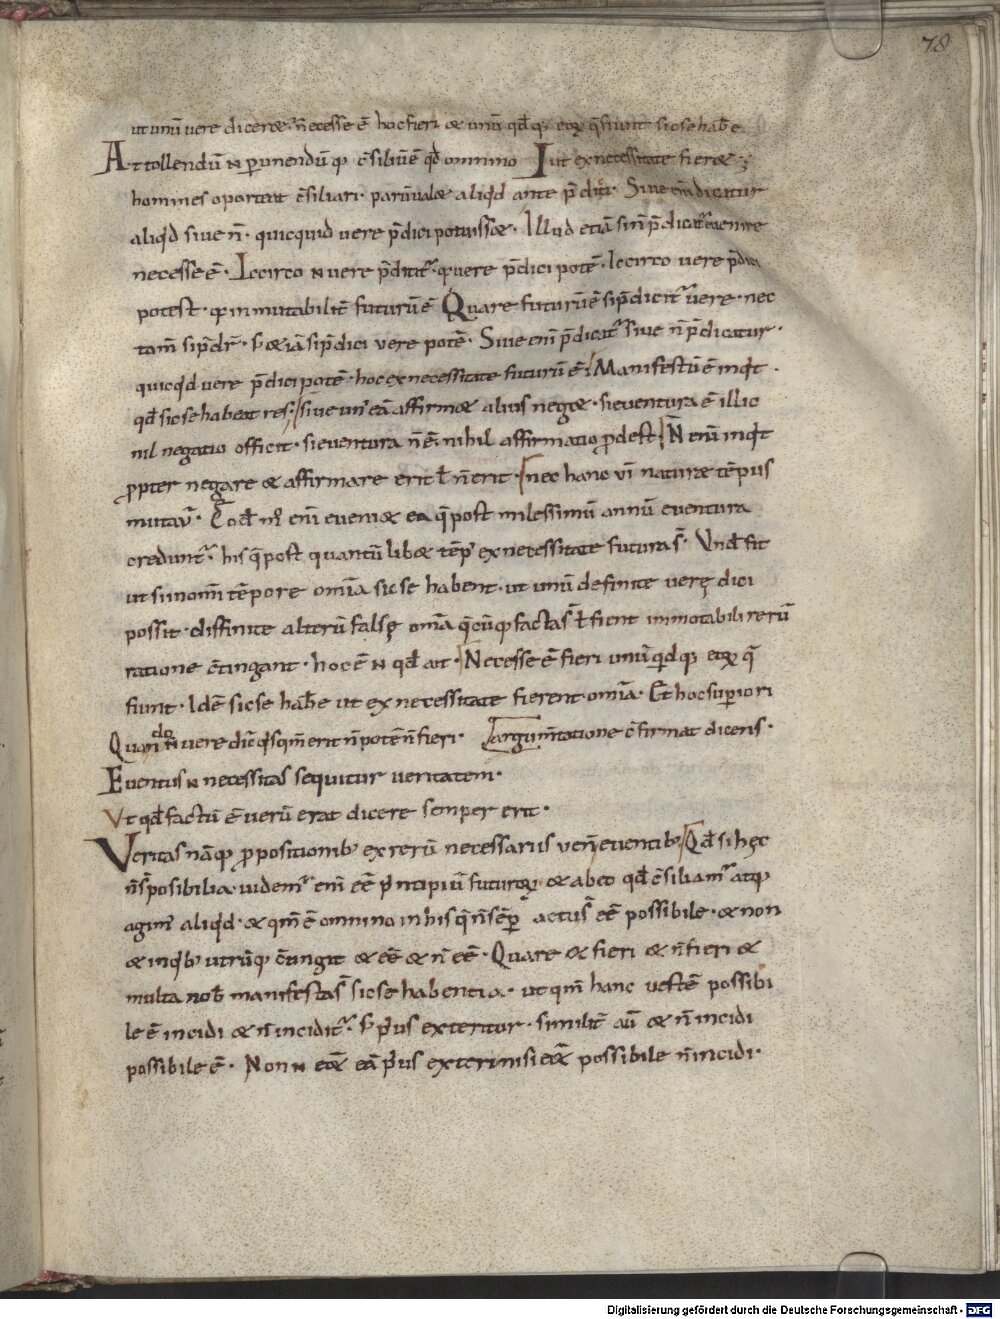 78
ut unū uere diceræ · n̄ecesse ē hoc fieri & unū qd̄q; eoꝝ q̄ fiunt sic se hab&
At tollendū n̄ ponendūq; c̄siliū ē qd̄ omnino Iut ex necessitate fieræ ·
homines oporteat c̄siliari · parū ualæ aliqd ante p̄dici · Siue eni dicatur
aliqd siue n̄ · quicquid uere p̄dici potuissæ · Illud etiā si n̄ p̄dicat euenire
necesse ē · Iccirco n̄ uere p̄dicit̄ · q; uere p̄dici potē · Iccirco uere p̄dici
potest · q; inmutabilit̄ futurū ē Quare futurū ē si p̄dicit̄ uere · nec
tam̄ si p̄dr̄ · s; & iā si p̄dici uere potē · Siue eni p̄dicat̄ siue n̄ p̄dicatur ·
quicqd uere p̄dici potē · hoc ex necessitate futurū ē · Manifestū ē inqt ·
qd̄ sic se habeat res · siue un' eā affirmæ alius negæ · si euentura ē illic
nil negatio officit · si euentura n̄ ē · nihil affirmatio p̄dest N̄ enī inqt
ppter negare & affirmare erit ł n̄ erit · nec hanc uī naturæ tēpus
mutat̄ · Qod̄ n̄ enī eueniæ ea q̄ post milessimū annū euentura
credunt̄ · his q̄ post quantū libæ tēp' ex necessitate futura s̄ · Vnd̄ fit
ut si in om̄i tēpore om̄ia sic se habent · ut unū definite uerę dici
possit · diffinite alterū falsę om̄a q̄cūq; facta s̄ ł fient inmotabili rerū
ratione c̄tingant · hoc ē n̄ qd̄ ait · Necesse ē fieri unū qdq; eoꝝ q̄
fiunt · Idē sic se hab& ut ex necessitate fierent om̄ia · Et hoc supiori
Quando n̄ uere dic̄ qsqm̄ erit n̄ potē n̄ fieri · argum̄tatione c̄firmat dicens ·
Euentus n̄ necessitas sequitur ueritatem ·
Vt qd̄ factū ē uerū erat dicere semper erit ·
Veritas nāq; ppositionib; ex rerū necessariis uenit euentib; Qd̄ si hęc
n̄ s̄ posibilia uidem' enī eē pntipiū futuroꝝ & ab eo qd̄ c̄siliam̄ atq;
agim' aliqd · & qm̄ ē omnino in his q̄ n̄ sēp actus eē possibile · & non
& in qb; utrūq; c̄tingit & eē & n̄ eē · Quare & fieri & n̄ fieri &
multa nob̄ manifesta s̄ sic se habentia · ut qm̄ hanc uestē possibi
le ē incidi & n̄ incidit̄ · s; p̄us exteritur · similit̄ aū & n̄ incidi
possibile ē · Non n̄ eēæ eā p̄us exteri nisi eēæ possibile n̄ incidi ·
Digitalisierung gefördert durch die Deutsche Forschungsgemeinschaft · DFG